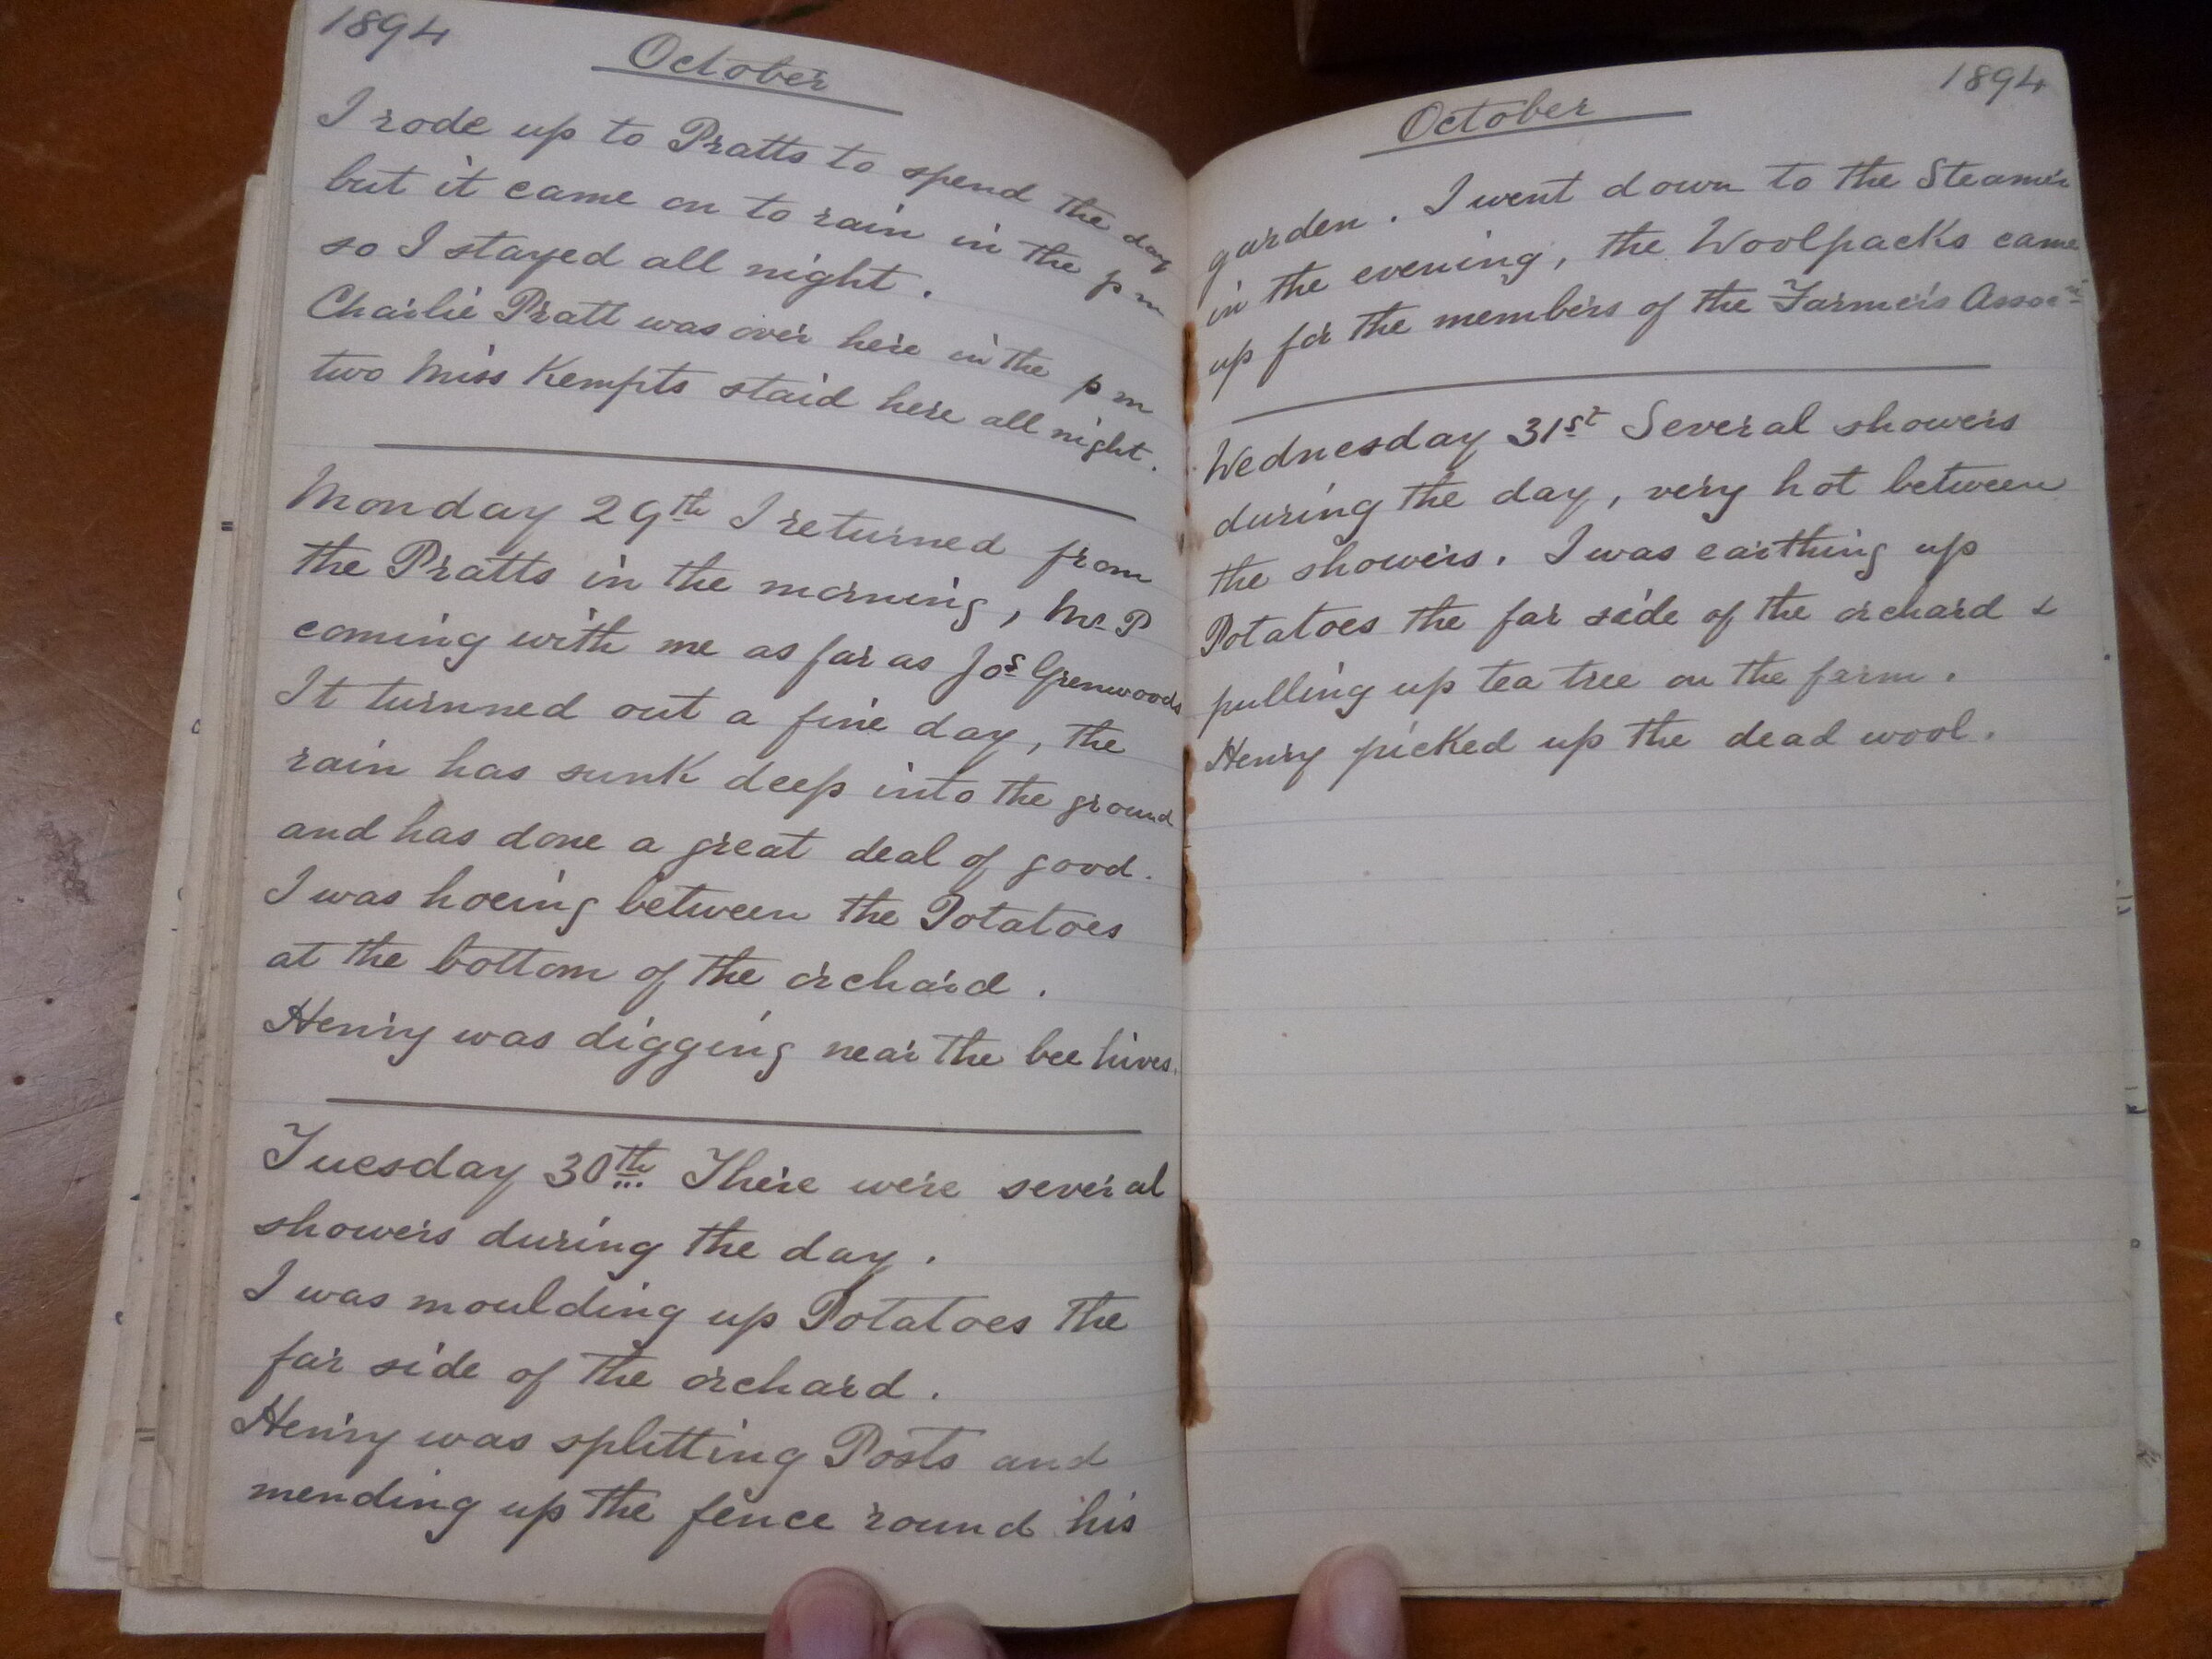 1894
October
I rode up to Pratts to spend the day
but it came on to rain in the p m
so I stayed all night.
Charlie Pratt was over here in the p m
two Miss Kempts staid here all night.
Monday 29th I returned from
the Pratts in the morning, Mr P
coming with me as far as Jos Grenwoods
It turnned out a fine day, the
rain has sunk deep into the ground
and has done a great deal of good.
I was hoeing between the Potatoes
at the bottom of the orchard.
Henry was digging near the bee hives.
Tuesday 30th There were several
showers during the day.
I was moulding up Potatoes the
far side of the orchard.
Henry was splitting Posts and
mending up the fence round his
1894
October
garden. I went down to the Steamer
in the evening, the Woolpacks came
up for the members of the Farmers Assocn
Wednesday 31st Several showers
during the day, very hot between
the showers. I was earthing up
Potatoes the far side of the orchard &
pulling up tea tree on the farm.
Henry picked up the dead wool.